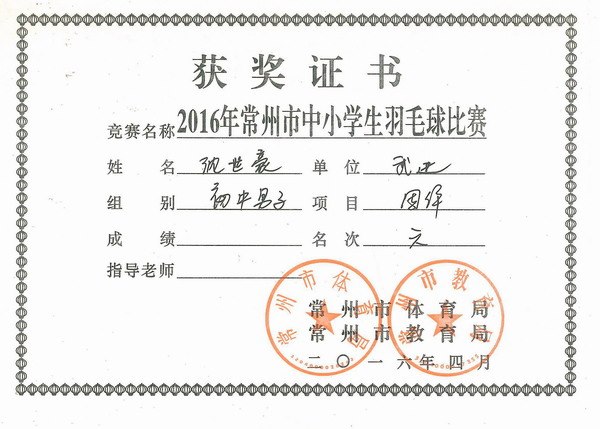 获奖证书
竞赛名称2016年常州市中小学生羽毛球比赛
姓名 沈世豪 单位 武进
组别 初中男子 项目 团体
成绩 名次
指导老师
常州市体育局
常州市教育局
二〇一六年四月
常州市体育局
常州市教育局